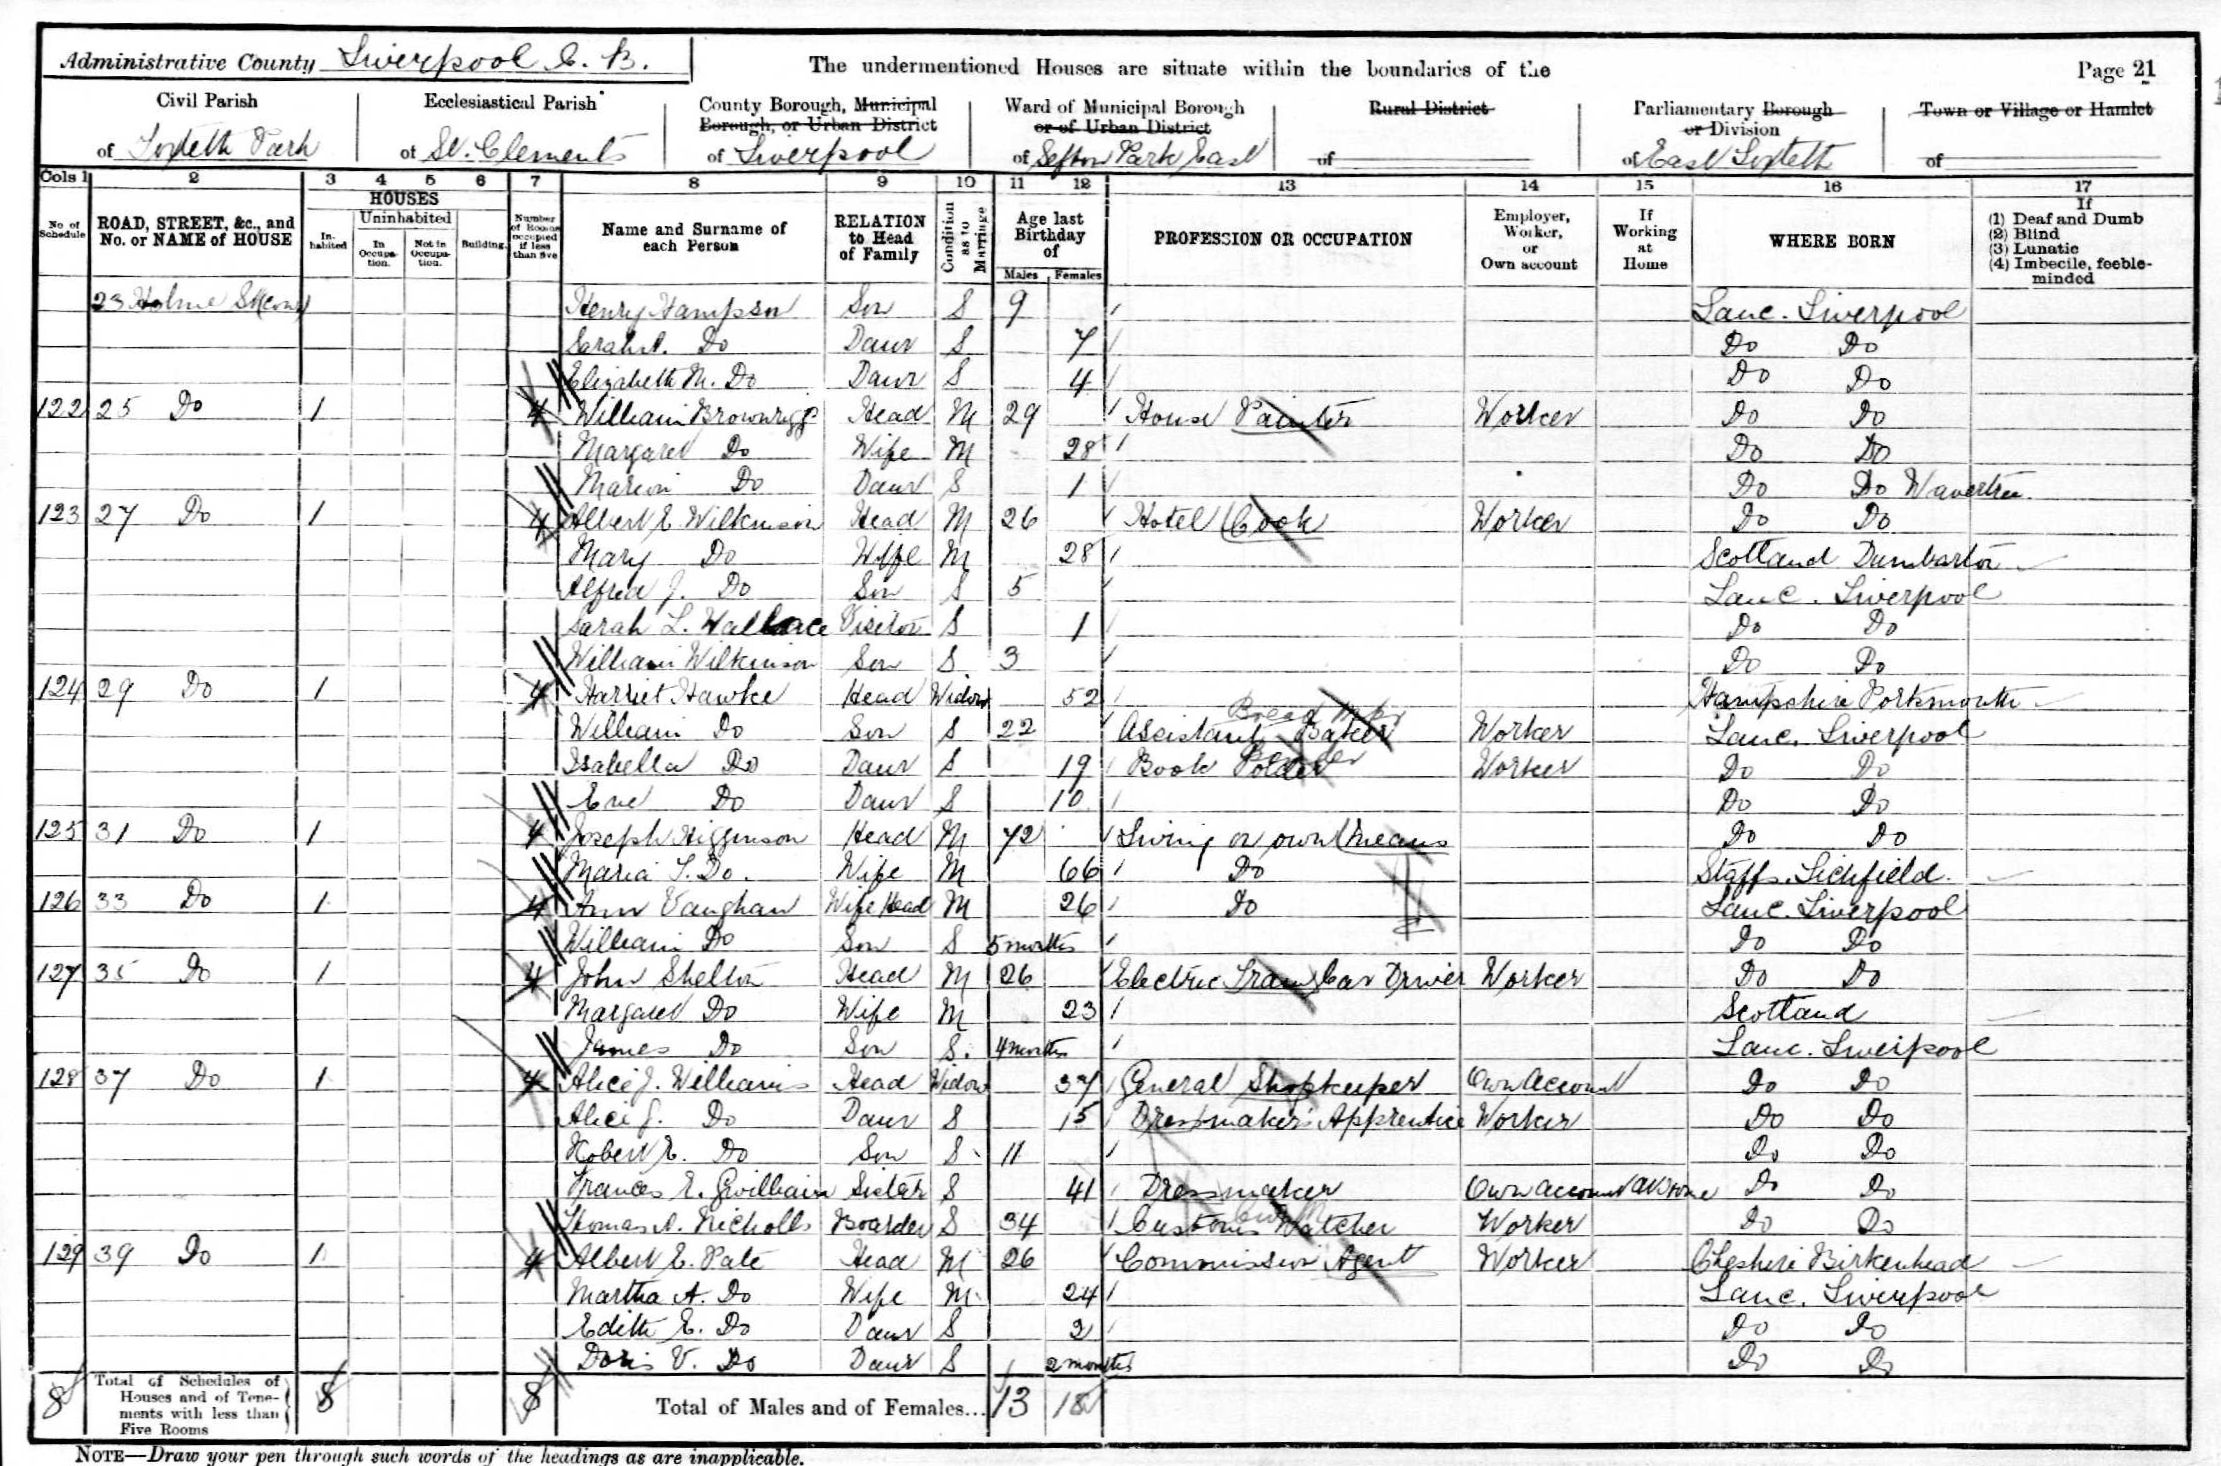 Administrative County Liverpool C. B.
The undermentioned Houses are situate within the boundaries of the
Page 21
Civil Parish of Toxteth Park
Ecclesiastical Parish of St. Clements
County Borough, Municipal Borough, or Urban District of Liverpool
Ward of Municipal Borough or of Urban District of Sefton Park East
Rural District of
Parliamentary Borough or Division of East Toxteth
Town or Village or Hamlet of
Cols 1 2 3 4 5 6 7 8 9 10 11 12 13 14 15 16 17
No of Schedule
ROAD, STREET, &c., and No. or NAME of HOUSE
HOUSES
Inhabited
Uninhabited
In Occupation.
Not in Occupation.
Building.
Number of Rooms occupied if less than five
Name and Surname of each Person
RELATION to Head of Family
Condition as to Marriage
Age last Birthday of
Males Females
PROFESSION OR OCCUPATION
Employer, Worker, or Own account
If Working at Home
WHERE BORN
If
(1) Deaf and Dumb
(2) Blind
(3) Lunatic
(4) Imbecile, feeble-minded
23 Holme St (Cont) Henry Hampson Son S 9 Lanc. Liverpool
Sarah A. Do Daur S 7 Do Do
Elizabeth M. Do Daur S 4 Do Do
122 25 Do 1 4 William Brownrigg Head M 29 House Painter Worker Do Do
Margaret Do Wife M 28 Do Do
Marion Do Daur S 1 Do Do Wavertree
123 27 Do 1 4 Albert E Wilkinson Head M 26 Hotel Cook Worker Do Do
Mary Do Wife M 28 Scotland Dumbarton
Alfred J. Do Son S 5 Lanc. Liverpool
Sarah L. Wallace Visitor S 1 Do Do
William Wilkinson Son S 3 Do Do
124 29 Do 1 4 Harriet Hawke Head Widow 52 Hampshire Portsmouth
William Do Son S 22 Assistant Baker Bread Mkr Worker Lanc. Liverpool
Isabella Do Daur S 19 Book Folder Worker Do Do
Eve Do Daur S 10 Do Do
125 31 Do 1 4 Joseph Higginson Head M 72 Living on own Means Do Do
Maria S. Do. Wife M 66 Do Staffs. Lichfield
126 33 Do 1 4 Ann Vaughan Wife Head M 26 Do Lanc. Liverpool
William Do Son S 5 months Do Do
127 35 Do 1 4 John Shelton Head M 26 Electric Tram Car Driver Worker Do Do
Margaret Do Wife M 23 Scotland
James Do Son S. 4 months Lanc. Liverpool
128 37 Do 1 4 Alice J. Williams Head Widow 37 General Shopkeeper Own Account Do Do
Alice J. Do Daur S 15 Dressmaker's Apprentice Worker Do Do
Robert E. Do Son S 11 Do Do
Frances E. Gwilliam Sister S 41 Dressmaker Own account At Home Do Do
Thomas A. Nicholls Boarder S 34 Customs Watcher Worker Do Do
129 39 Do 1 4 Albert E. Pate Head M 26 Commission Agent Worker Cheshire Birkenhead
Martha A. Do Wife M 24 Lanc. Liverpool
Edith E. Do Daur S 2 Do Do
Doris V. Do Daur S 2 months Do Do
8 Total of Schedules of Houses and of Tenements with less than Five Rooms 8 8 Total of Males and of Females... 13 18
NOTE—Draw your pen through such words of the headings as are inapplicable.